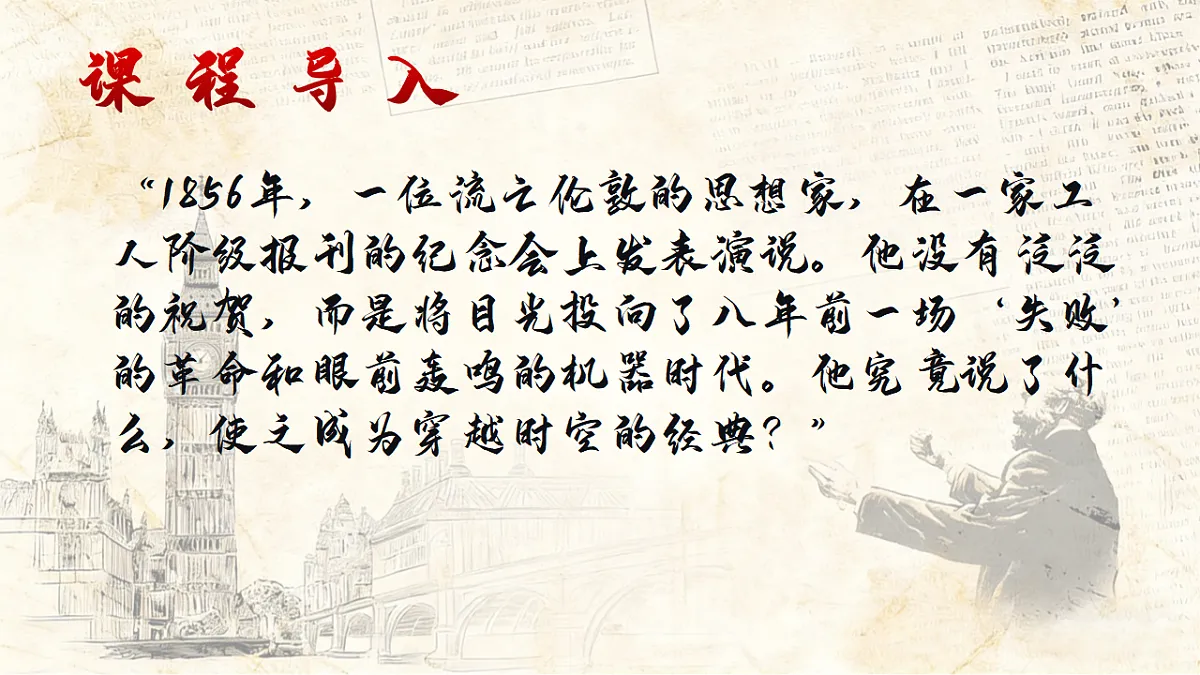 课程导入
“1856年，一位流亡伦敦的思想家，在一家工
人阶级报刊的纪念会上发表演说。他没有泛泛
的祝贺，而是将目光投向了八年前一场‘失败’
的革命和眼前轰鸣的机器时代。他究竟说了什
么，使之成为穿越时空的经典？”